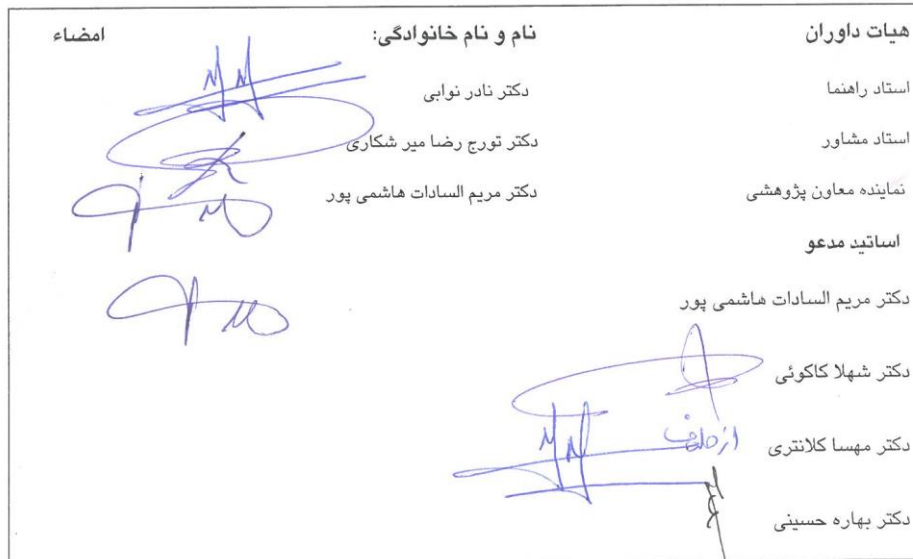 هیات داوران نام و نام خانوادگی: امضاء
استاد راهنما دکتر نادر نوابی
استاد مشاور دکتر تورج رضا میر شکاری
نماینده معاون پژوهشی دکتر مریم السادات هاشمی پور
اساتید مدعو
دکتر مریم السادات هاشمی پور
دکتر شهلا کاکوئی
دکتر مهسا کلانتری از طرف
دکتر بهاره حسینی